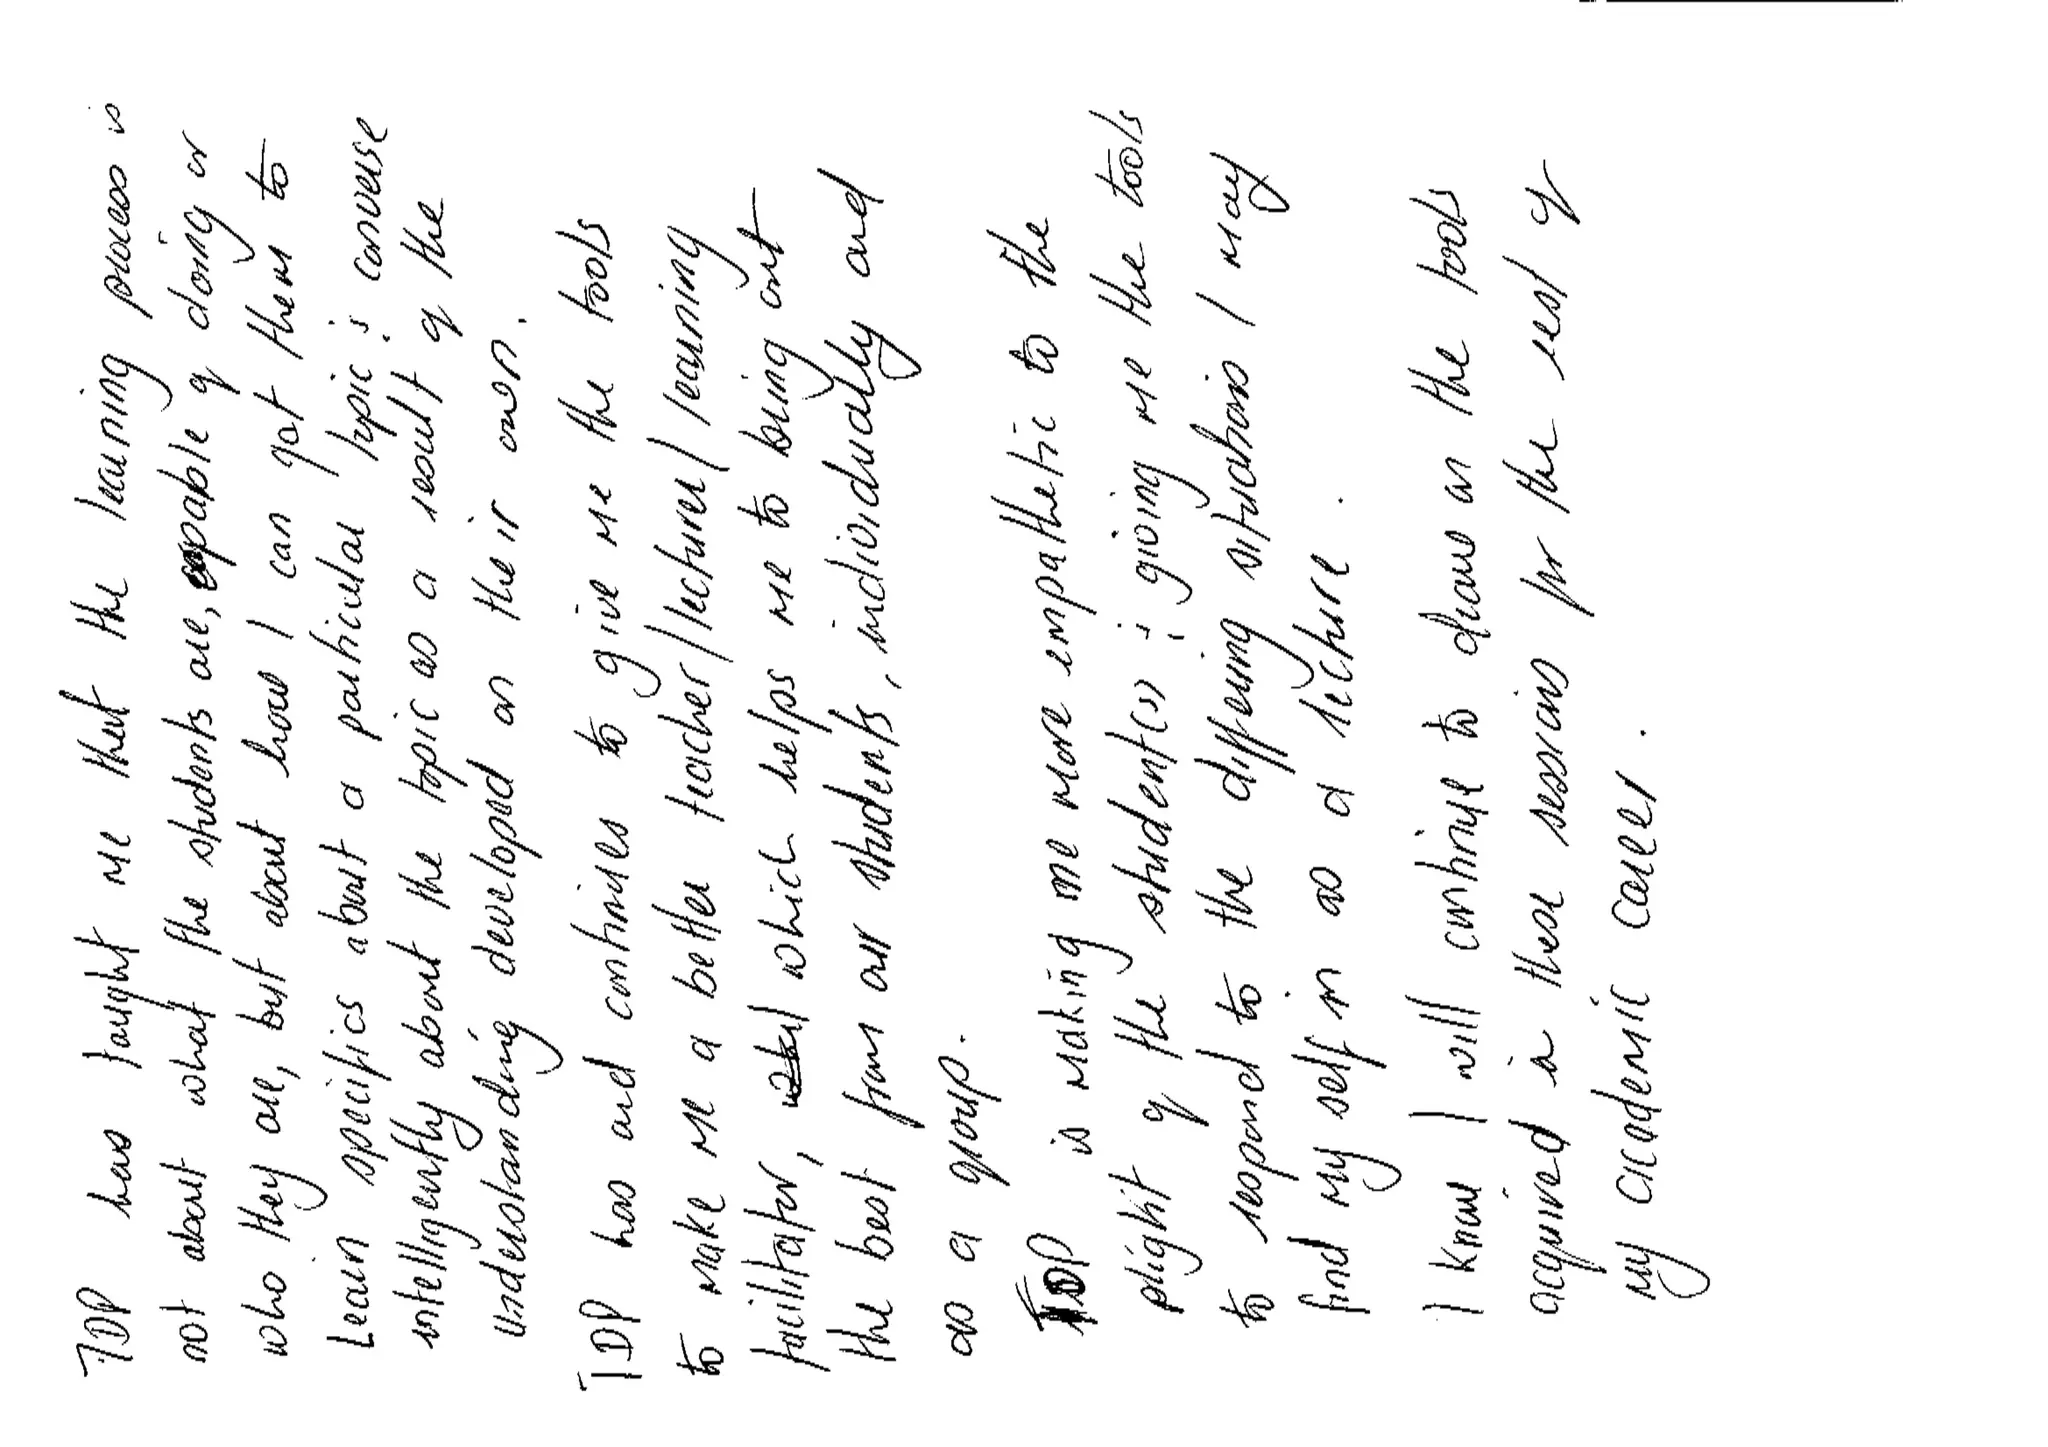 TDP has taught me that the learning process is
not about what the students are, capable of doing or
who they are, but about how I can get them to
Learn specifics about a particular topic & converse
intelligently about the topic as a result of the
understanding developed on their own.
TDP has and continues to give me the tools
to make me a better teacher/lecturer/learning
facilitator, which helps me to bring out
the best from our students, individually and
as a group.
TDP is making me more empathetic to the
plight of the student(s) & giving me the tools
to respond to the differing situations I may
find my self in as a lecture.
I know I will continue to draw on the tools
acquired in these sessions for the rest of
my academic career.